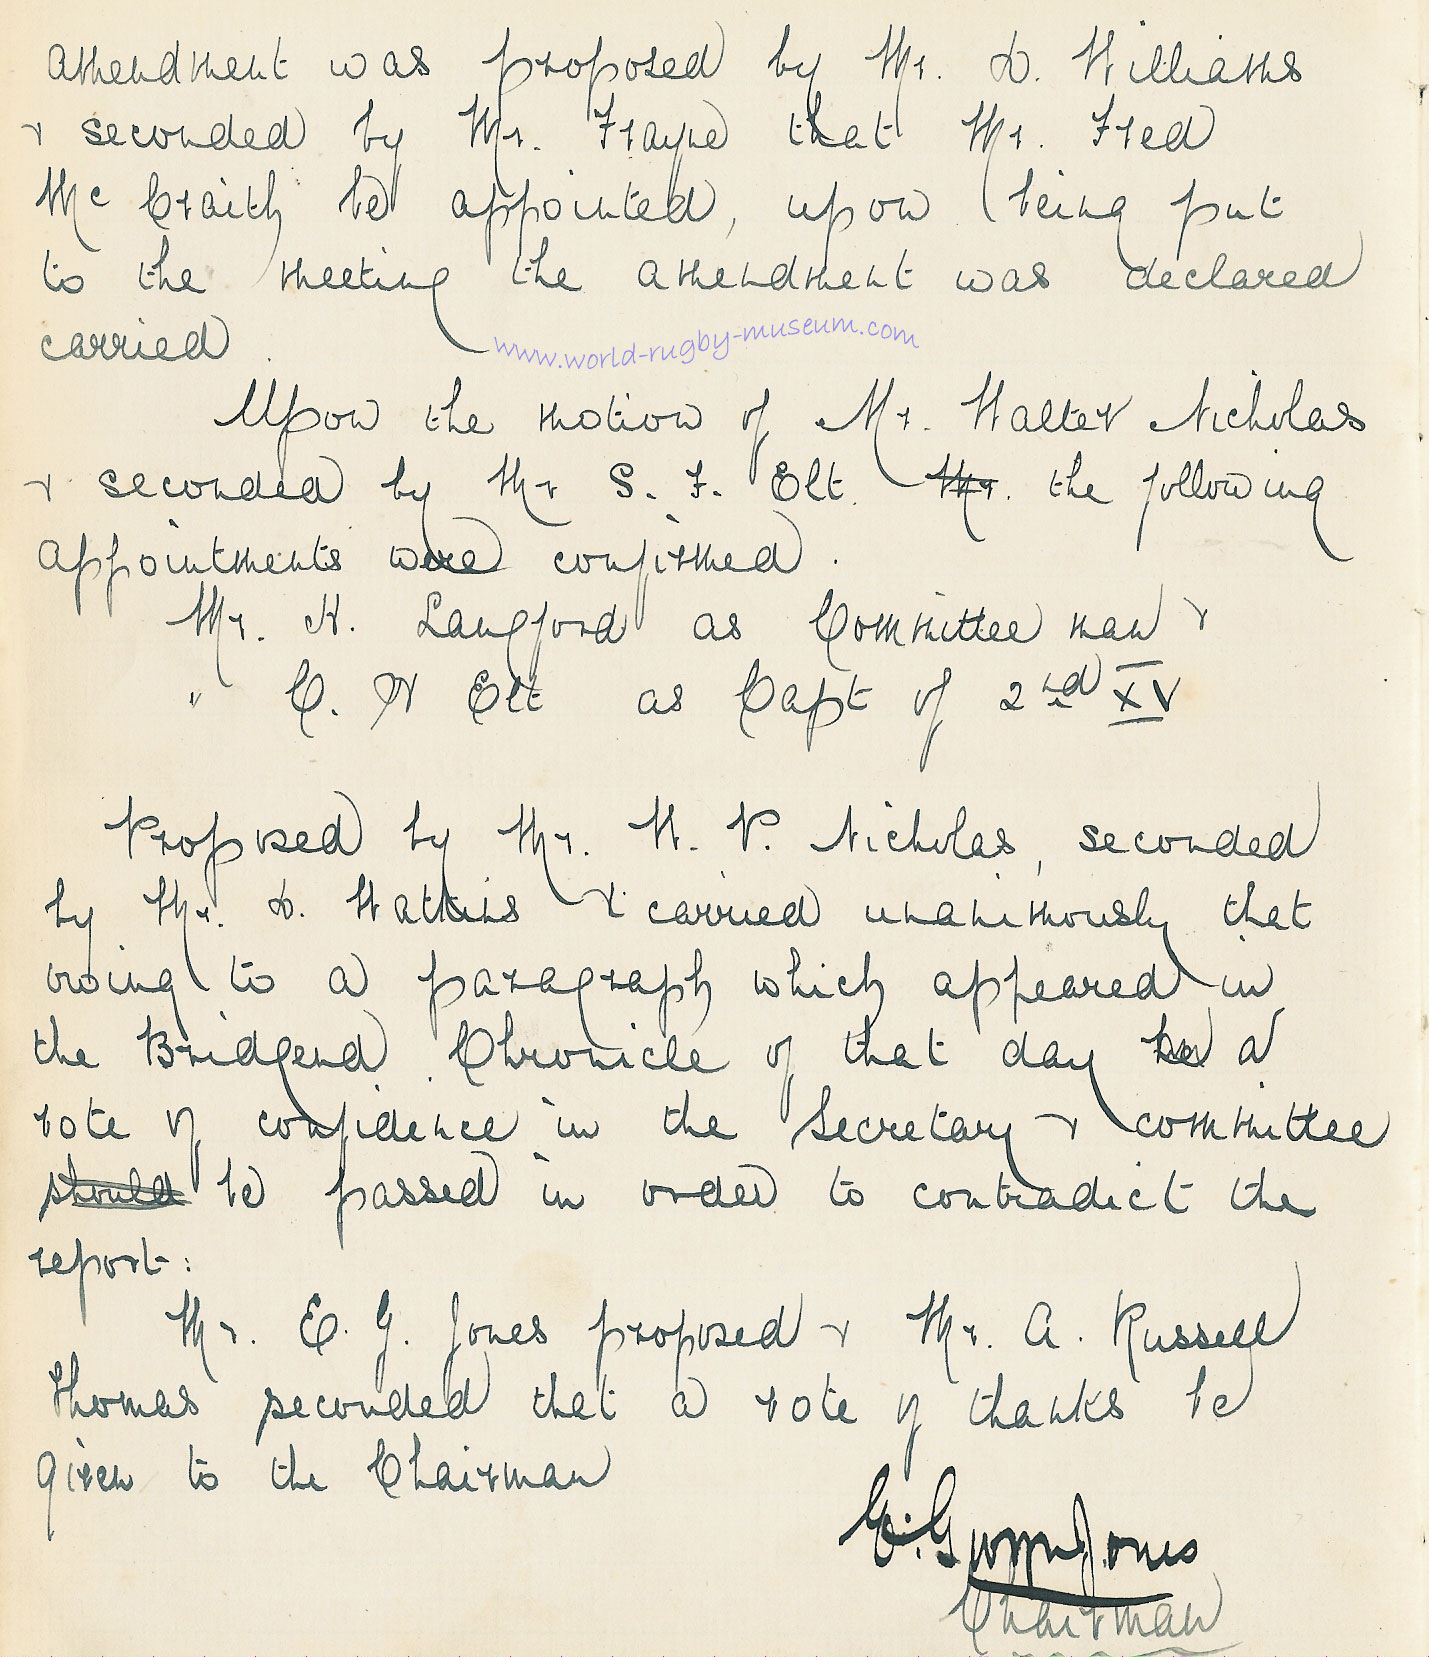 amendment was proposed by Mr. D. Williams
& seconded by Mr. Frayne that Mr. Fred
Mc Craith be appointed, upon being put
to the meeting the amendment was declared
carried.
www.world-rugby-museum.com
Upon the motion of Mr. Walter Nicholas
& seconded by Mr S. F. Elt. Mr. the following
appointments were confirmed.
Mr. H. Langford as Committee man &
" C. W Elt as Capt of 2nd XV
Proposed by Mr. W. P. Nicholas, seconded
by Mr. D. Watkins & carried unanimously that
owing to a paragraph which appeared in
the Bridgend Chronicle of that day a
vote of confidence in the Secretary & committee
should be passed in order to contradict the
report:
Mr. E. G. Jones proposed & Mr. A. Russell
Thomas seconded that a vote of thanks be
given to the Chairman
E. Gwynne Jones
Chairman